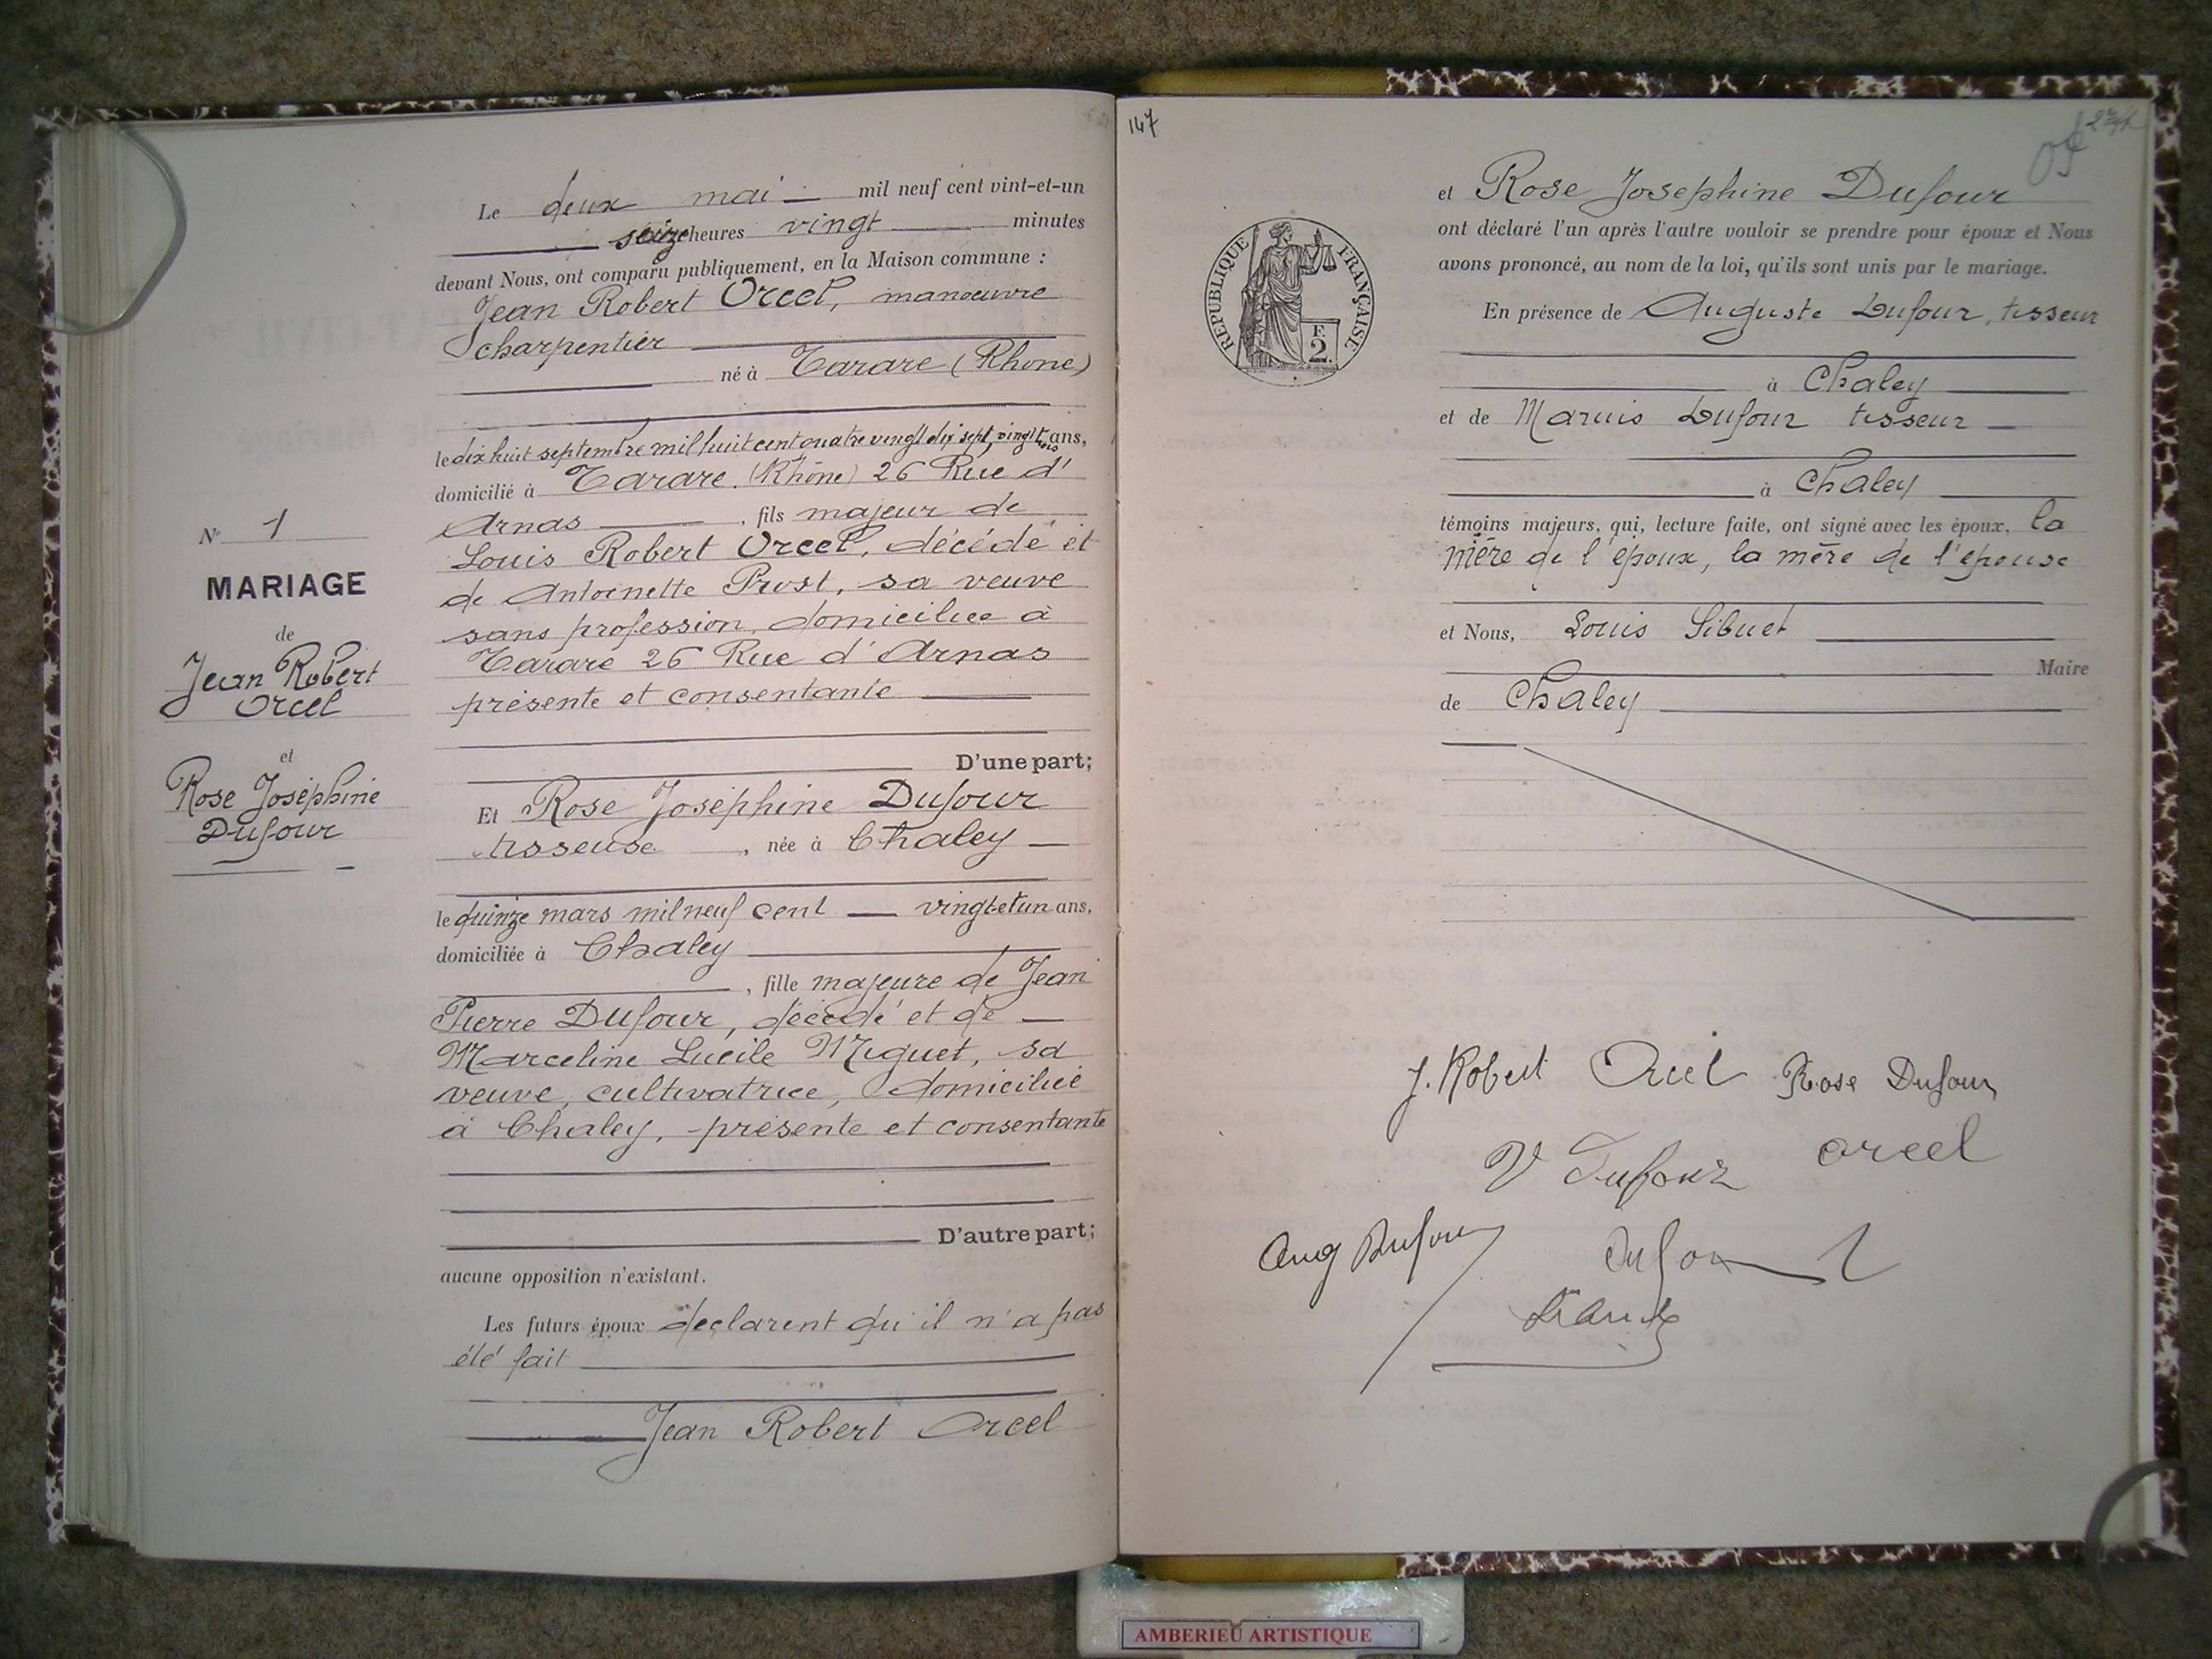 Le deux mai mil neuf cent vint-et-un
seize heures vingt minutes
devant Nous, ont comparu publiquement, en la Maison commune :
Jean Robert Orcel, manoeuvre
charpentier
né à Tarare (Rhone)
le dix huit septembre mil huit cent quatre vingt dix sept, vingt trois ans,
domicilié à Tarare. (Rhône) 26 Rue d'
Arnas , fils majeur de
Louis Robert Orcel, décédé et
de Antoinette Prost, sa veuve
sans profession, domiciliee à
Tarare 26 Rue d'Arnas
présente et consentante
D'une part;
Et Rose Joséphine Dufour
tisseuse , née à Chaley
le quinze mars mil neuf cent vingt et un ans,
domiciliée à Chaley
, fille majeure de Jean
Pierre Dufour, décédé et de
Marceline Lucile Miguet, sa
veuve, cultivatrice, domiciliée
à Chaley, présente et consentante
D'autre part;
aucune opposition n'existant.
Les futurs époux declarent qu'il n'a pas
été fait
Jean Robert Orcel
N° 1
MARIAGE
de
Jean Robert
Orcel
et
Rose Joséphine
Dufour
147
et Rose Josephine Dufour
ont déclaré l'un après l'autre vouloir se prendre pour époux et Nous
avons prononcé, au nom de la loi, qu'ils sont unis par le mariage.
En présence de Auguste Dufour, tisseur
à Chaley
et de Maruis Dufour tisseur
à Chaley
témoins majeurs, qui, lecture faite, ont signé avec les époux, la
mère de l'époux, la mère de l'épouse
et Nous, Louis Sibuet
Maire
de Chaley
RÉPUBLIQUE FRANÇAISE
F.
2.
J. Robert Orcel Rose Dufour
V Dufour orcel
Aug Dufour Dufour
AMBERIEU ARTISTIQUE